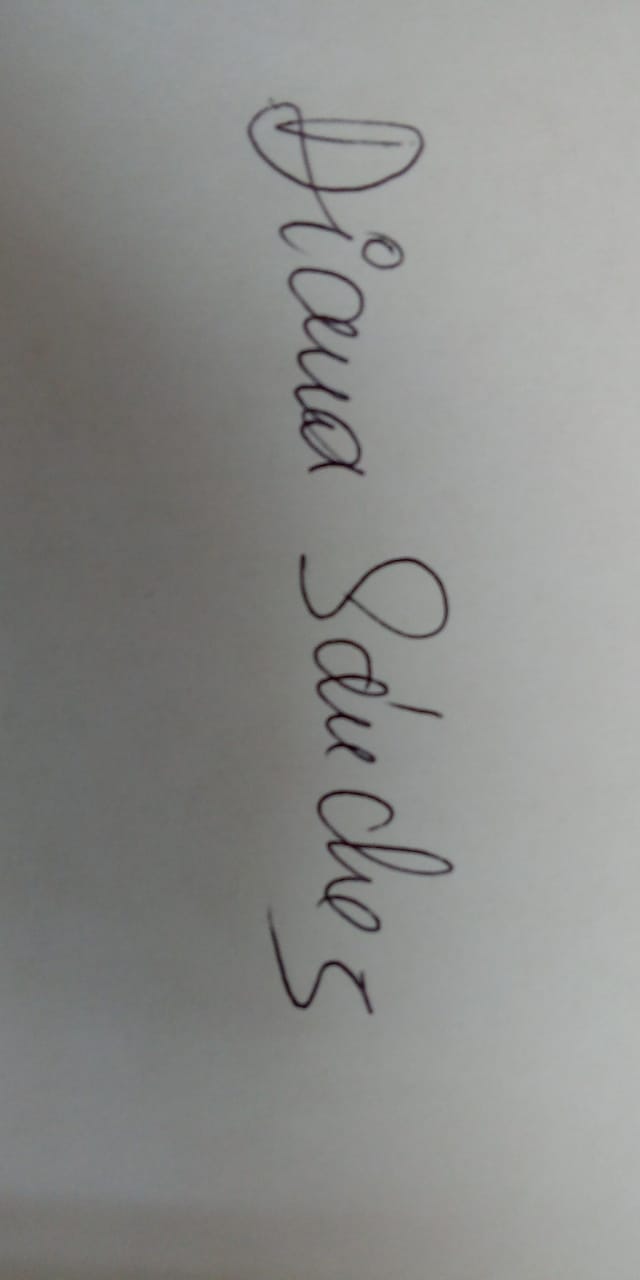 Diana Sánches